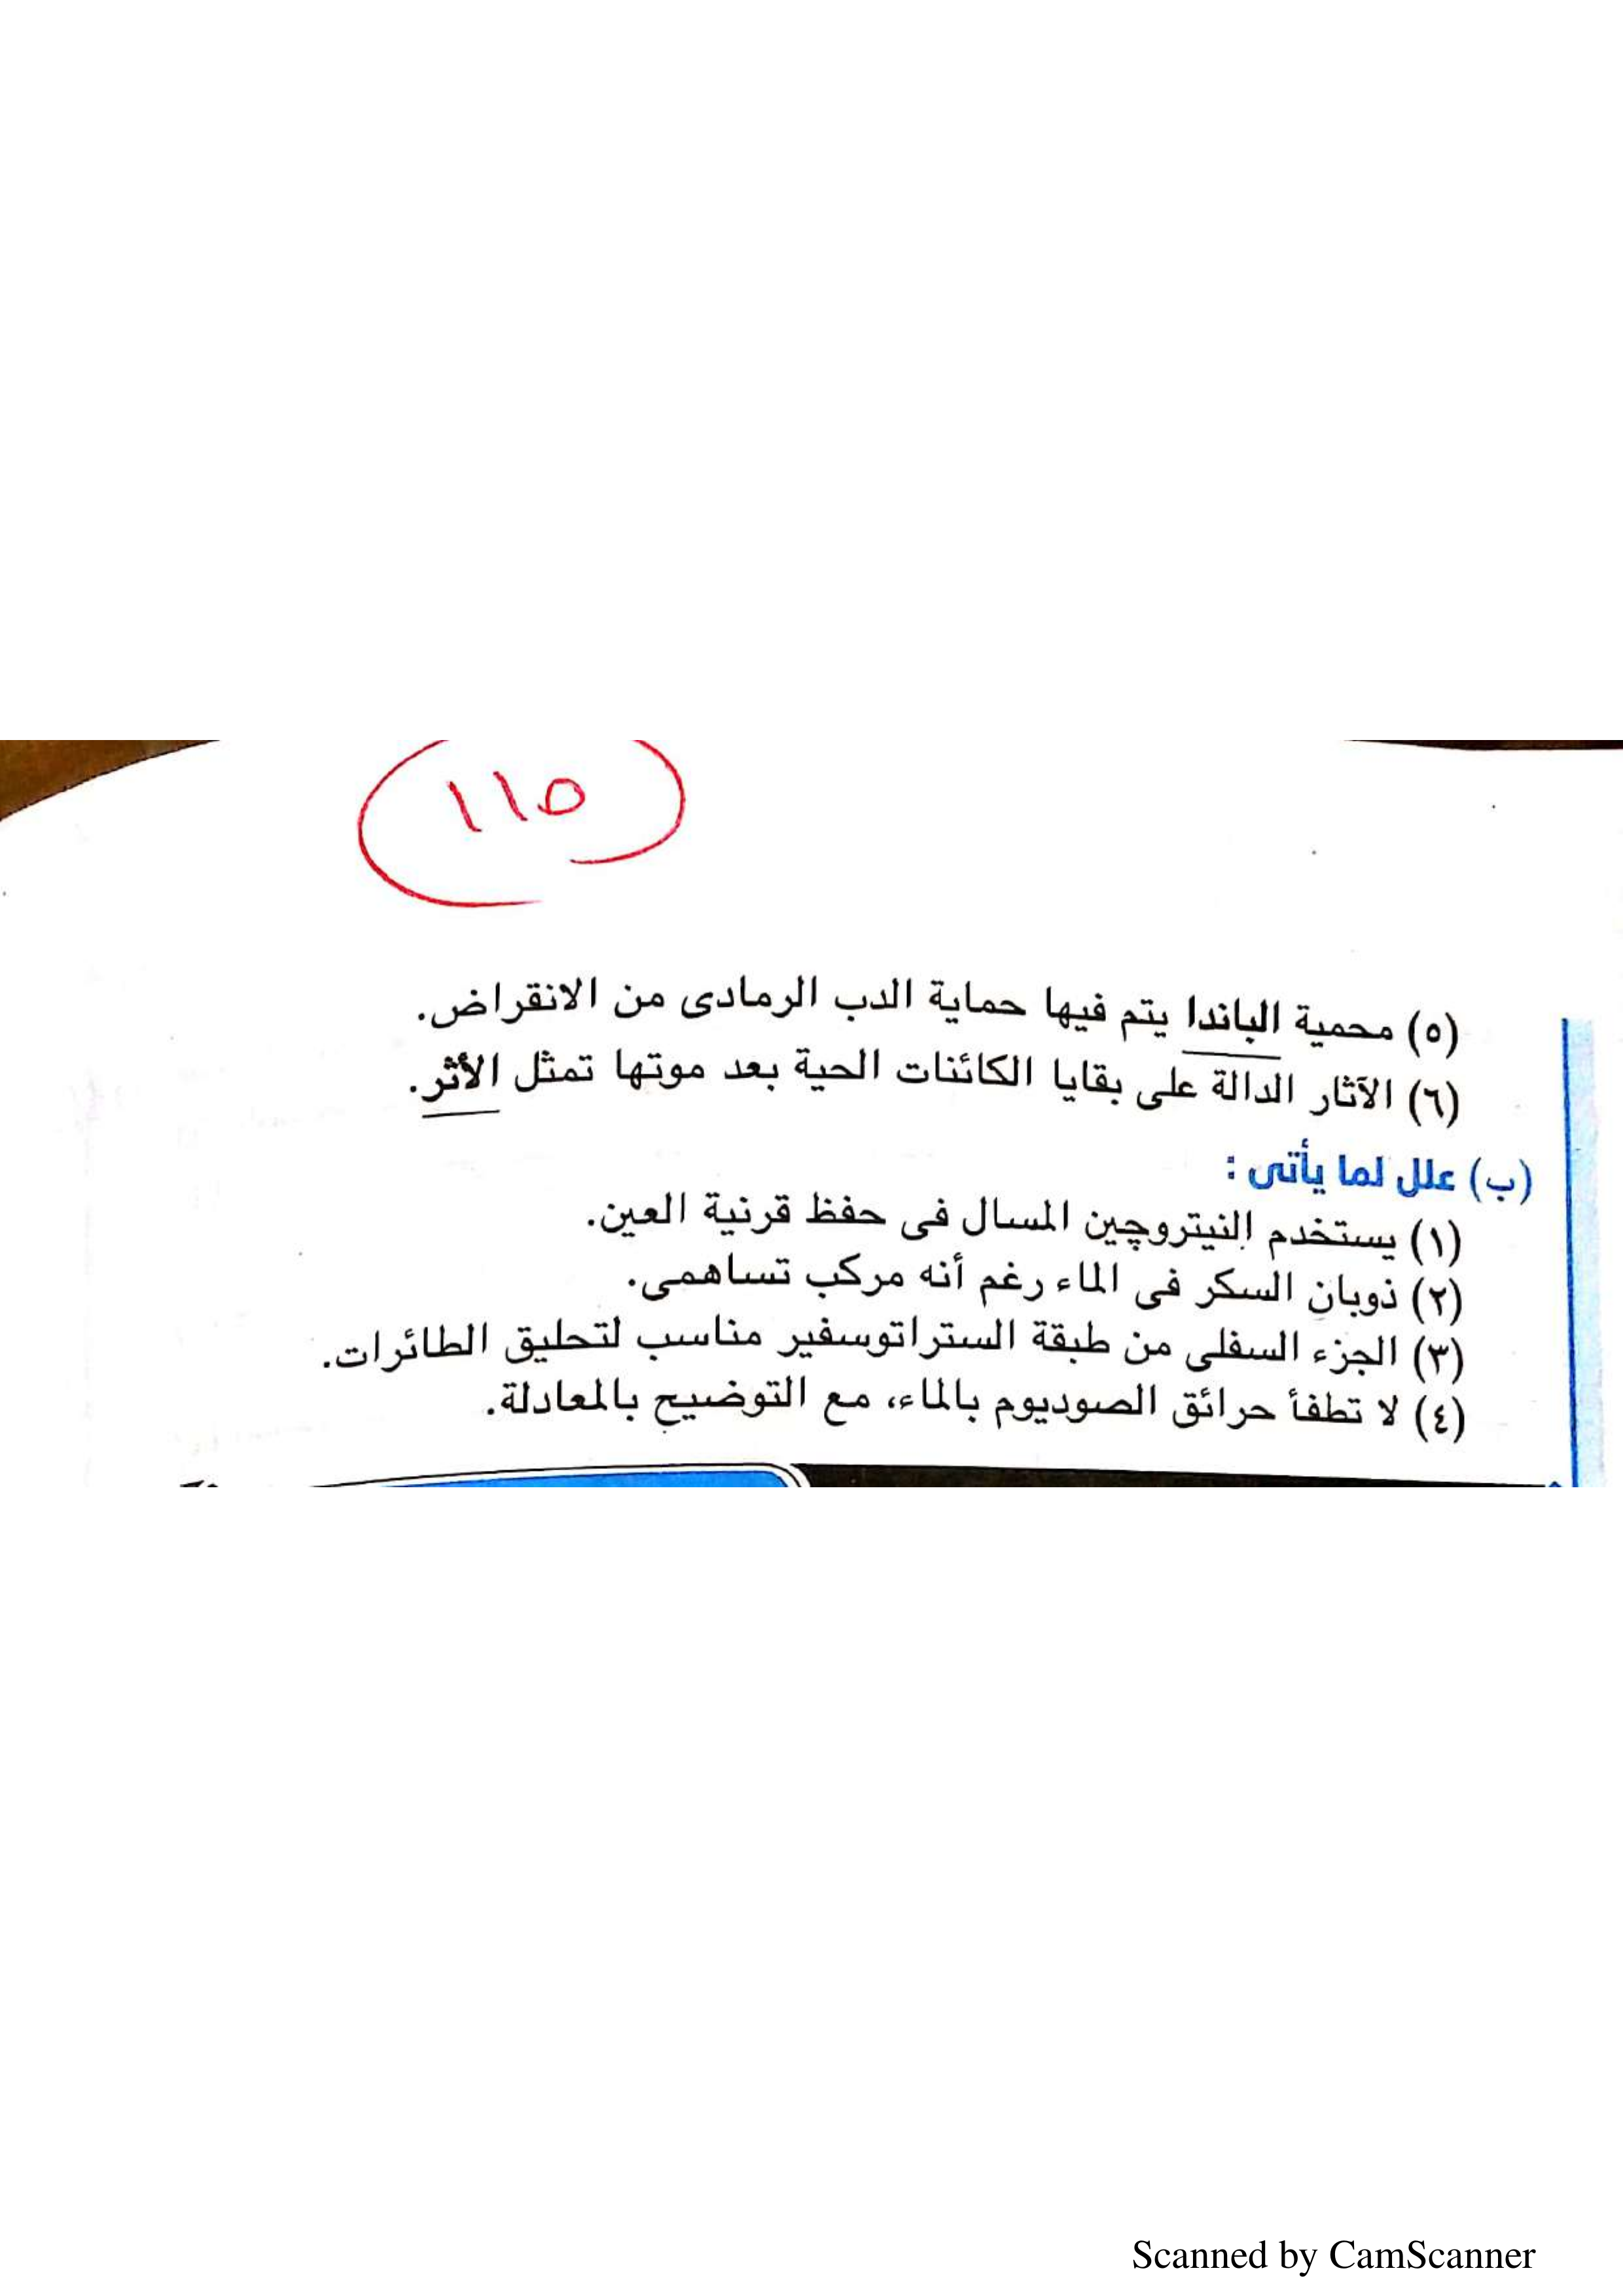 ١١٥
(٥) محمية الباندا يتم فيها حماية الدب الرمادى من الانقراض.
(٦) الآثار الدالة على بقايا الكائنات الحية بعد موتها تمثل الأثر.
(ب) علل لما يأتى :
(١) يستخدم النيتروچين المسال فى حفظ قرنية العين.
(٢) ذوبان السكر فى الماء رغم أنه مركب تساهمى.
(٣) الجزء السفلى من طبقة الستراتوسفير مناسب لتحليق الطائرات.
(٤) لا تطفأ حرائق الصوديوم بالماء، مع التوضيح بالمعادلة.
Scanned by CamScanner